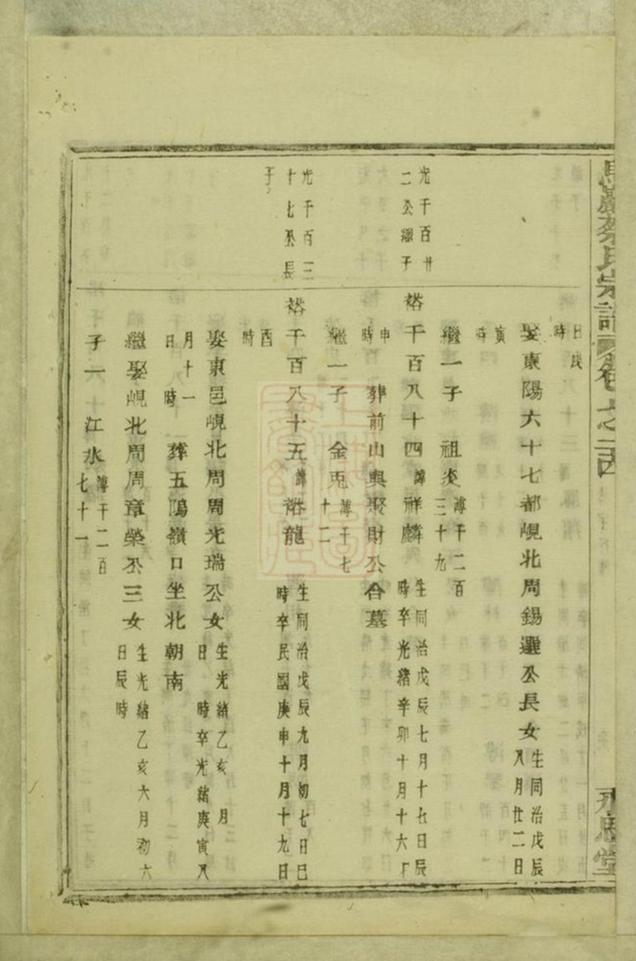 蔡氏宗譜 卷之
永思堂
日戌時
娶東陽六十七都峴北周錫選公長女 生同治戊辰八月廿二日寅時
繼一子 祖炎 溥千二百三十九
光千百廿二公繼子
裕千百八十四 諱祥麟 生同治戊辰七月十七日辰時卒光緒辛卯十月十六日申時
葬前山與聚財公合墓
繼一子 金兎 溥千七十二
光千百三十七公長子
裕千百八十五 諱裕龍 生同治戊辰九月初七日巳時卒民國庚申十月十九日酉時
娶東邑峴北周周光瑞公女 生光緒乙亥 月 日 時卒光緒庚寅八月十一日 時
葬五隖嶺口坐北朝南
繼娶峴北周周章榮公三女 生光緒乙亥六月初六日辰時
子一 江水 溥千二百七十一